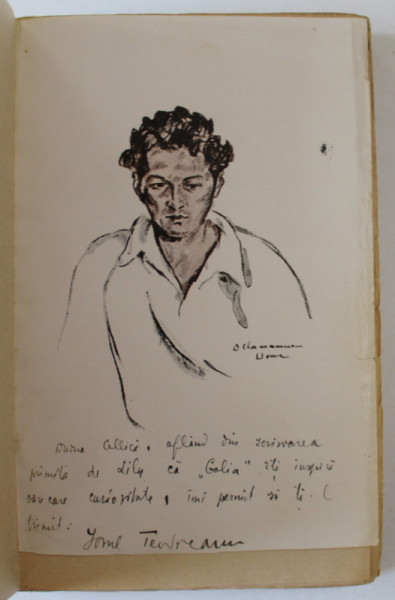 Delamarina
Doamna Allice, aflând din scrisoarea
primită de Lily că „Golia" îți inspiră
oare care curiozitate, îmi permit să ți-l
trimit:
Ionel Teodoreanu